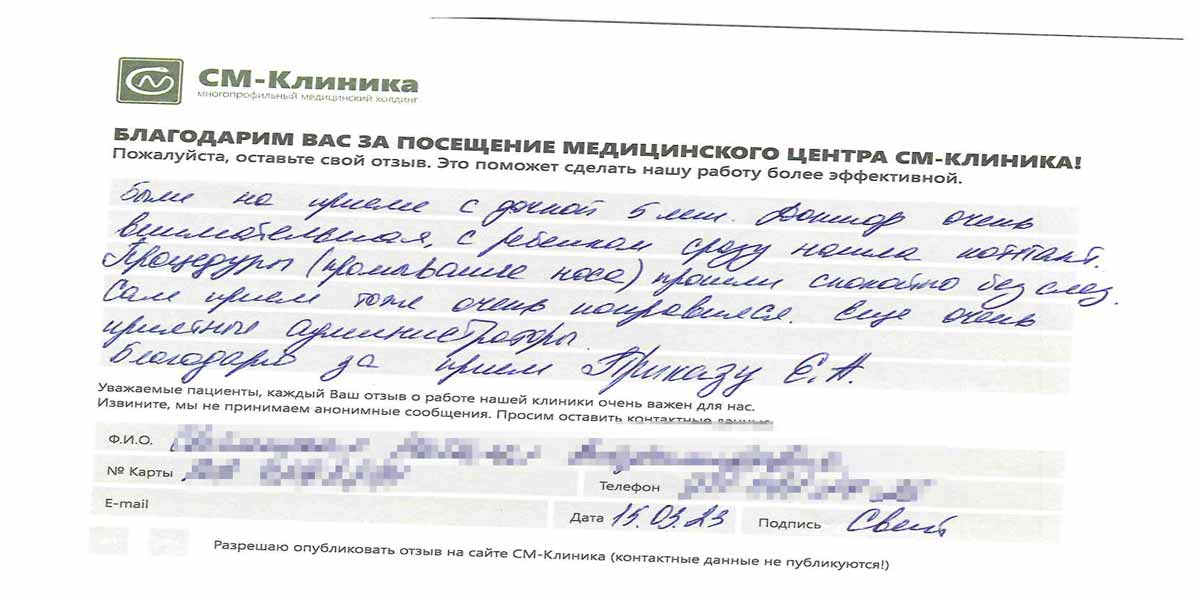 СМ-Клиника
многопрофильный медицинский холдинг
БЛАГОДАРИМ ВАС ЗА ПОСЕЩЕНИЕ МЕДИЦИНСКОГО ЦЕНТРА СМ-КЛИНИКА!
Пожалуйста, оставьте свой отзыв. Это поможет сделать нашу работу более эффективной.
были на приеме с дочкой 5 лет. Доктор очень
внимательная, с ребенком сразу нашла контакт.
Процедуры (промывание носа) прошли спокойно без слез.
Сам прием тоже очень понравился. Еще очень
приятные администраторы.
Благодарю за прием Приказу Е.А.
Уважаемые пациенты, каждый Ваш отзыв о работе нашей клиники очень важен для нас.
Извините, мы не принимаем анонимные сообщения. Просим оставить контактные данные
Ф.И.О.
№ Карты
Телефон
E-mail
Дата 15.03.23 Подпись
Разрешаю опубликовать отзыв на сайте СМ-Клиника (контактные данные не публикуются!)